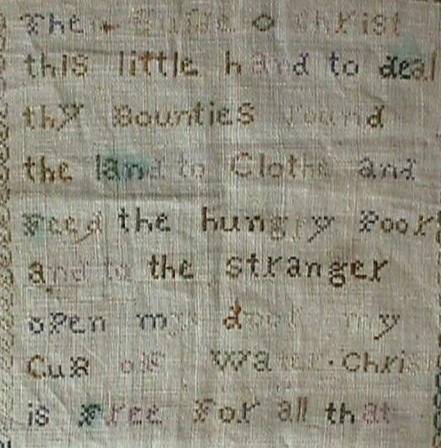 The o Christ
this little hand to deal
thy Bounties round
the land to Clothe and
Feed the hungry Poor
and to the stranger
open my door my
Cup of Water · Chris
is Free For all that